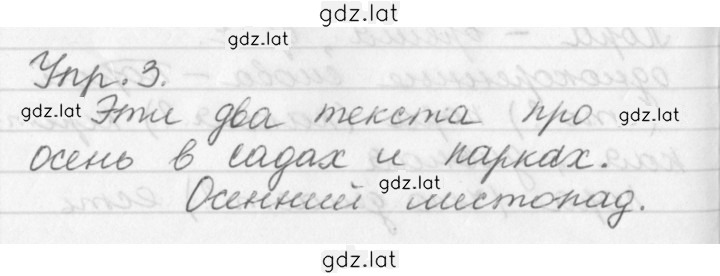 gdz.lat
gdz.lat
Упр. 3.
gdz.lat
Эти два текста про
gdz.lat
осень в садах и парках.
gdz.lat
Осенний листопад.
gdz.lat